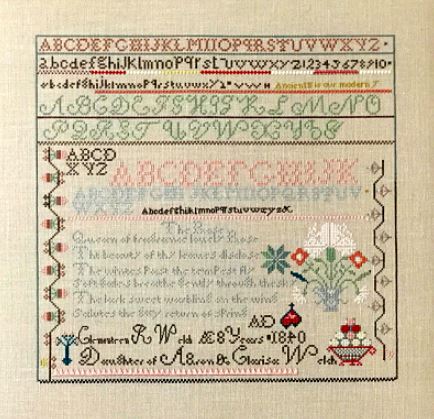 ABCDEFGHIJKLMNOPQRSTUVWXYZ
abcdefghijklmnopqrstuvwxyz12345678910
ABCDEFGHIJKLMNO
PQRSTUVWXYZ
ABCD
XYZ
ABCDEFGHIJK
abcdefghijklmnopqrstuvwxyz
The Rose
Queen of fragrance lovely Rose
The beauty of thy leaves disclose
The winters Past the tempest fly
Soft Gales breathe Gently through the sky
The lark sweet warbling on the wing
Salutes the Gay return of spring
AD
R Welch Æ 8 Years 1840
Daughter of Aaron & Clarisa Welch